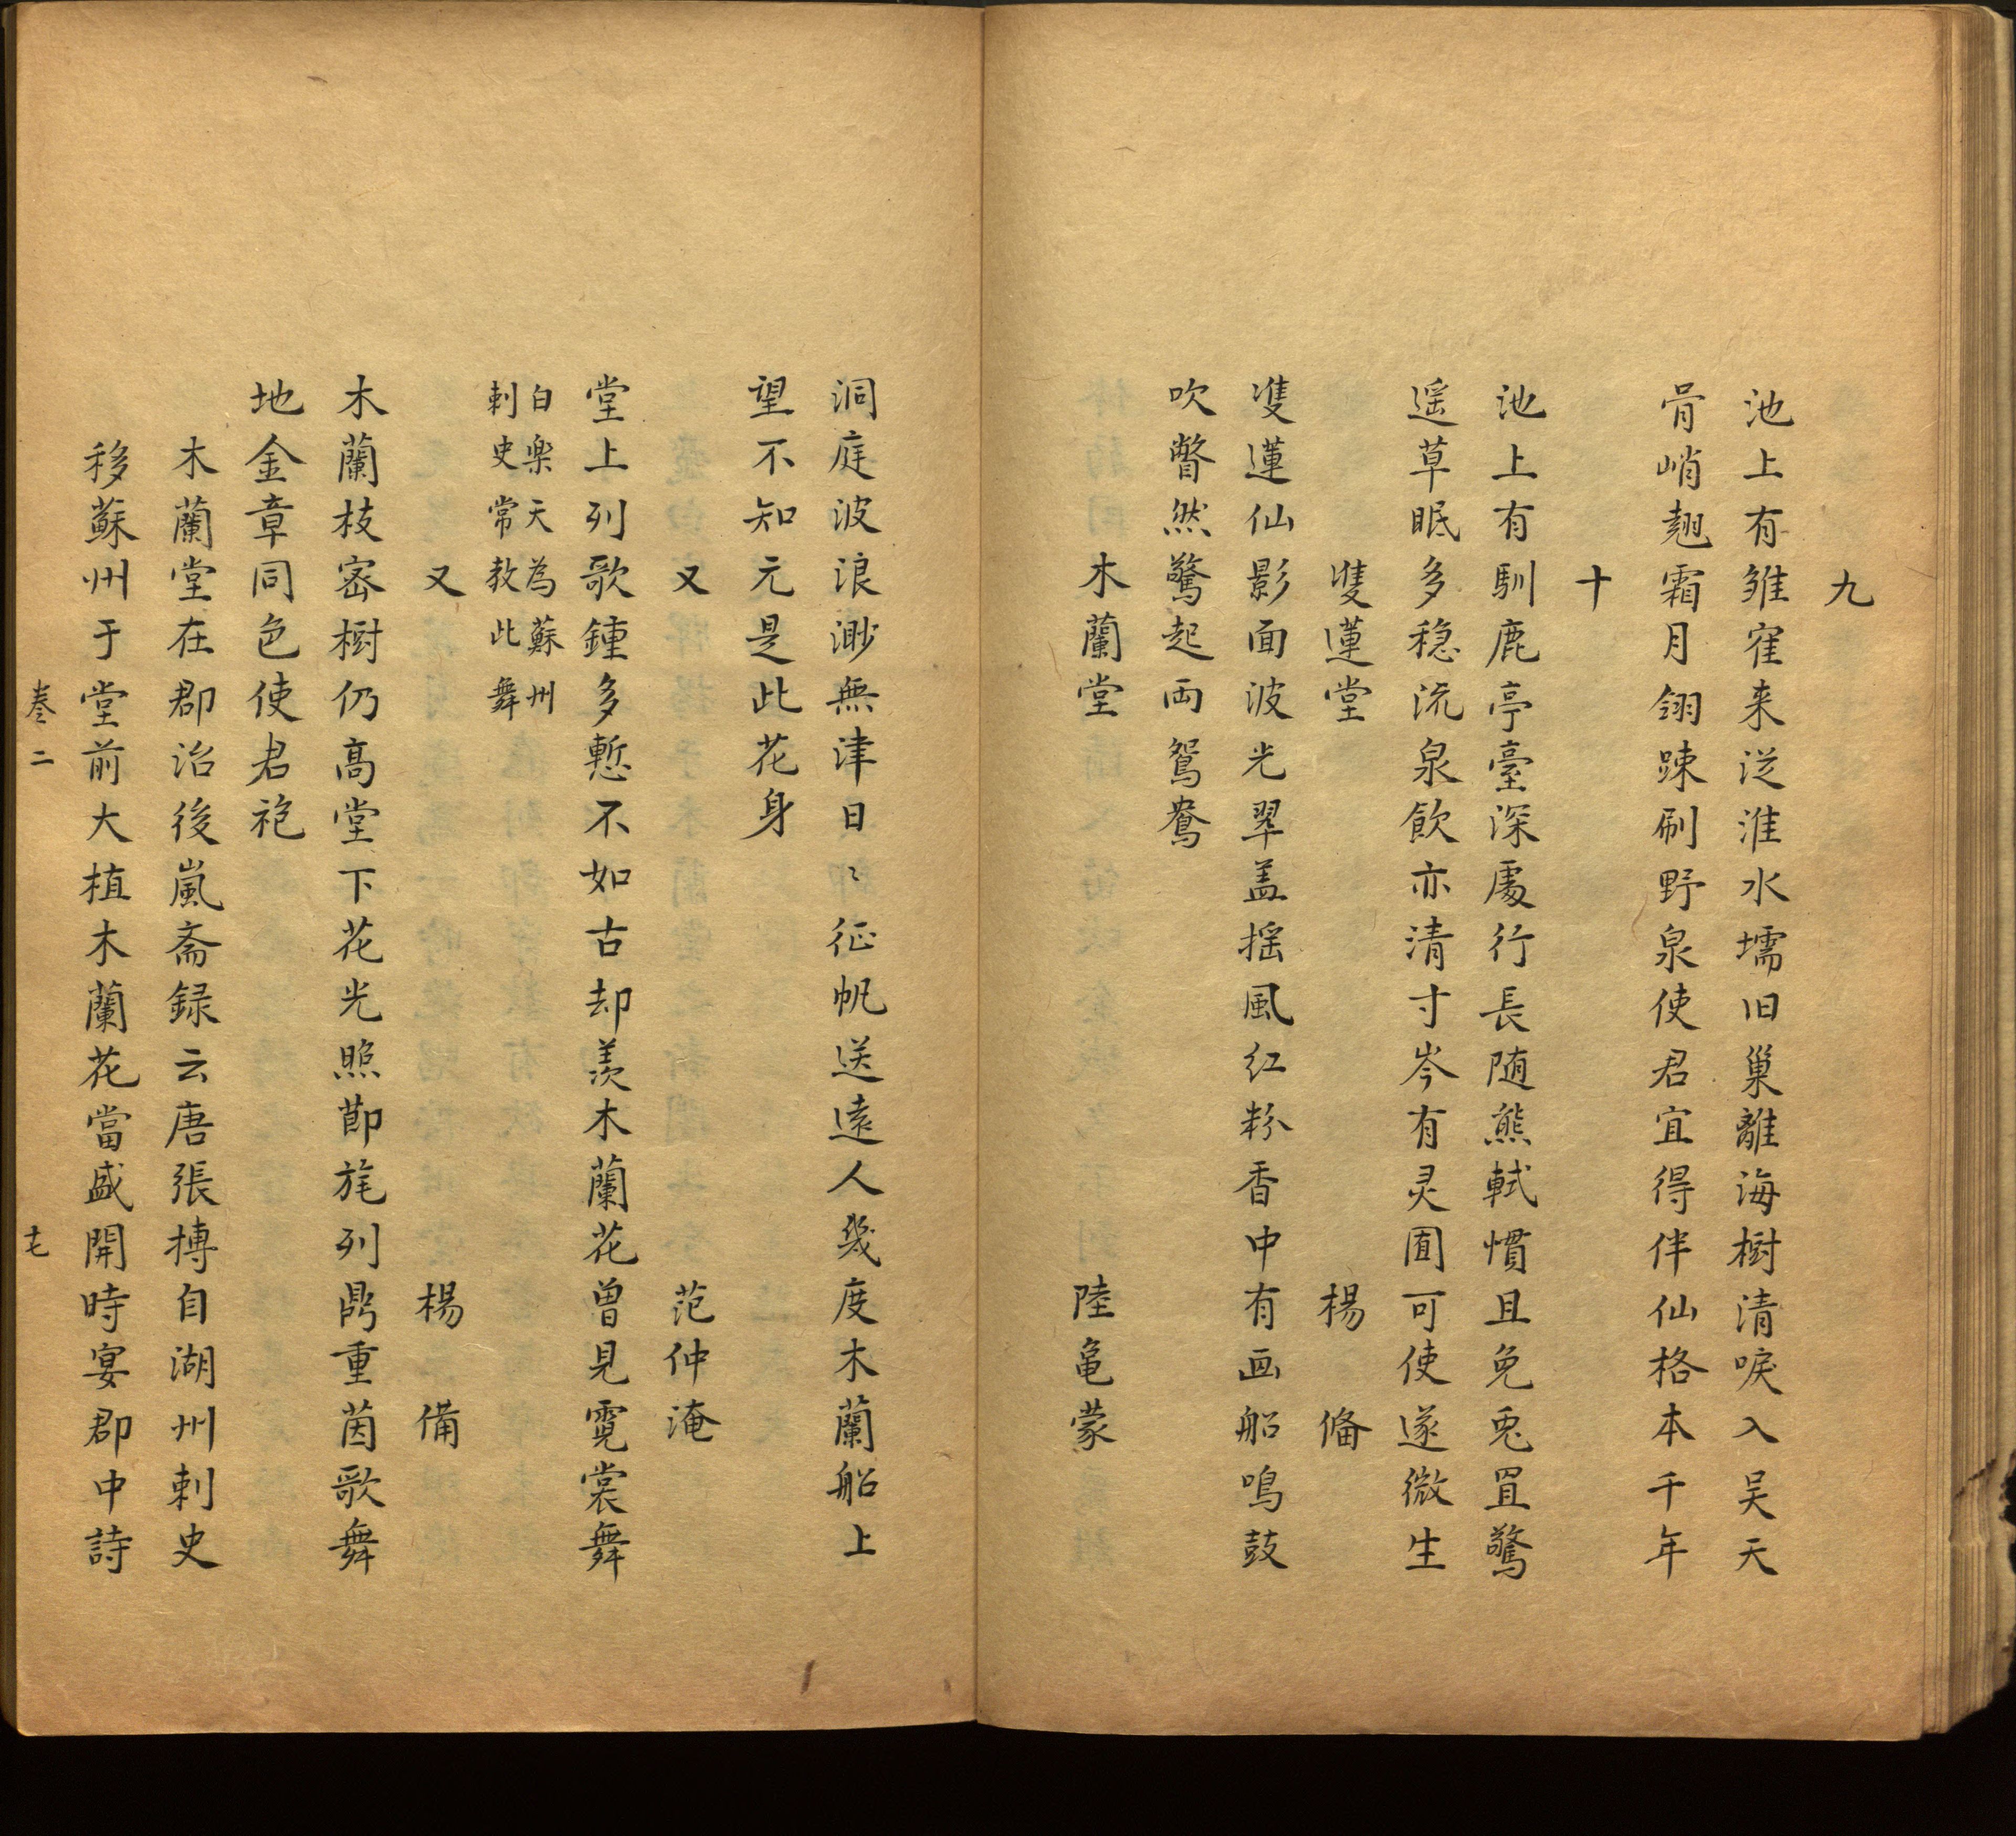 九
池上有雏寉来泛淮水壖旧巢離海樹清唳入吴天
骨峭翹霜月翎踈刷野泉使君宜得伴仙格本千年
十
池上有馴鹿亭臺深處行長随熊軾慣且免兎罝驚
遥草眠多穏流泉飲亦清寸岑有灵囿可使遂微生
䨇蓮堂 楊 俻
䨇蓮仙影面波光翠盖揺風红粉香中有画船鳴鼓
吹瞥然驚起両鴛鴦
木蘭堂 陸亀蒙
洞庭波浪渺無津日〻征帆送遠人幾度木蘭船上
望不知元是此花身
又 范仲淹
堂上列歌鍾多慙不如古却羡木蘭花曽見霓裳舞
白楽天為蘇州
刺史常教此舞
又 楊 備
木蘭枝宻樹仍髙堂下花光照節旄列鼎重茵歌舞
地金章同色使君袍
木蘭堂在郡治後嵐斋録云唐張摶自湖州刺史
移蘇州于堂前大植木蘭花當盛開時宴郡中詩
卷二 十七